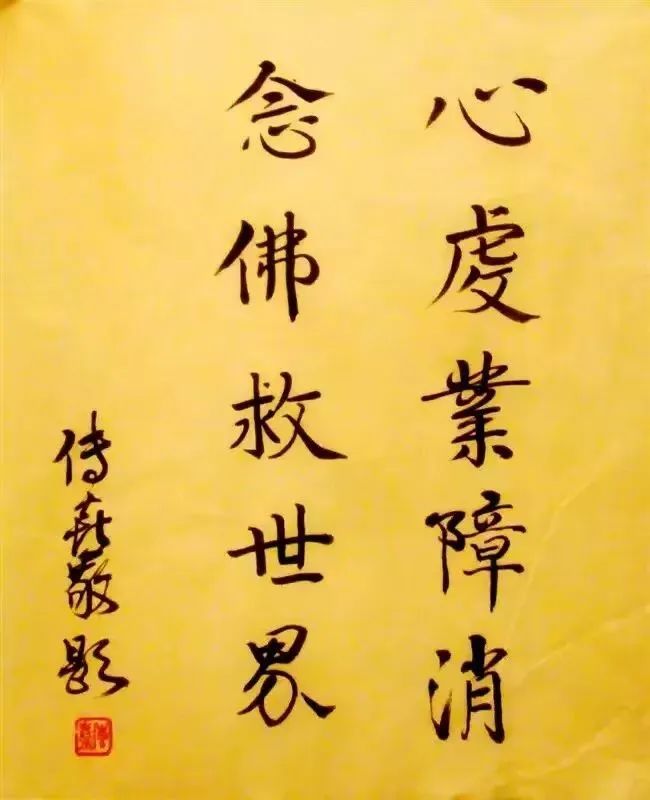 心虔業障消
念佛救世界
傳喜敬題